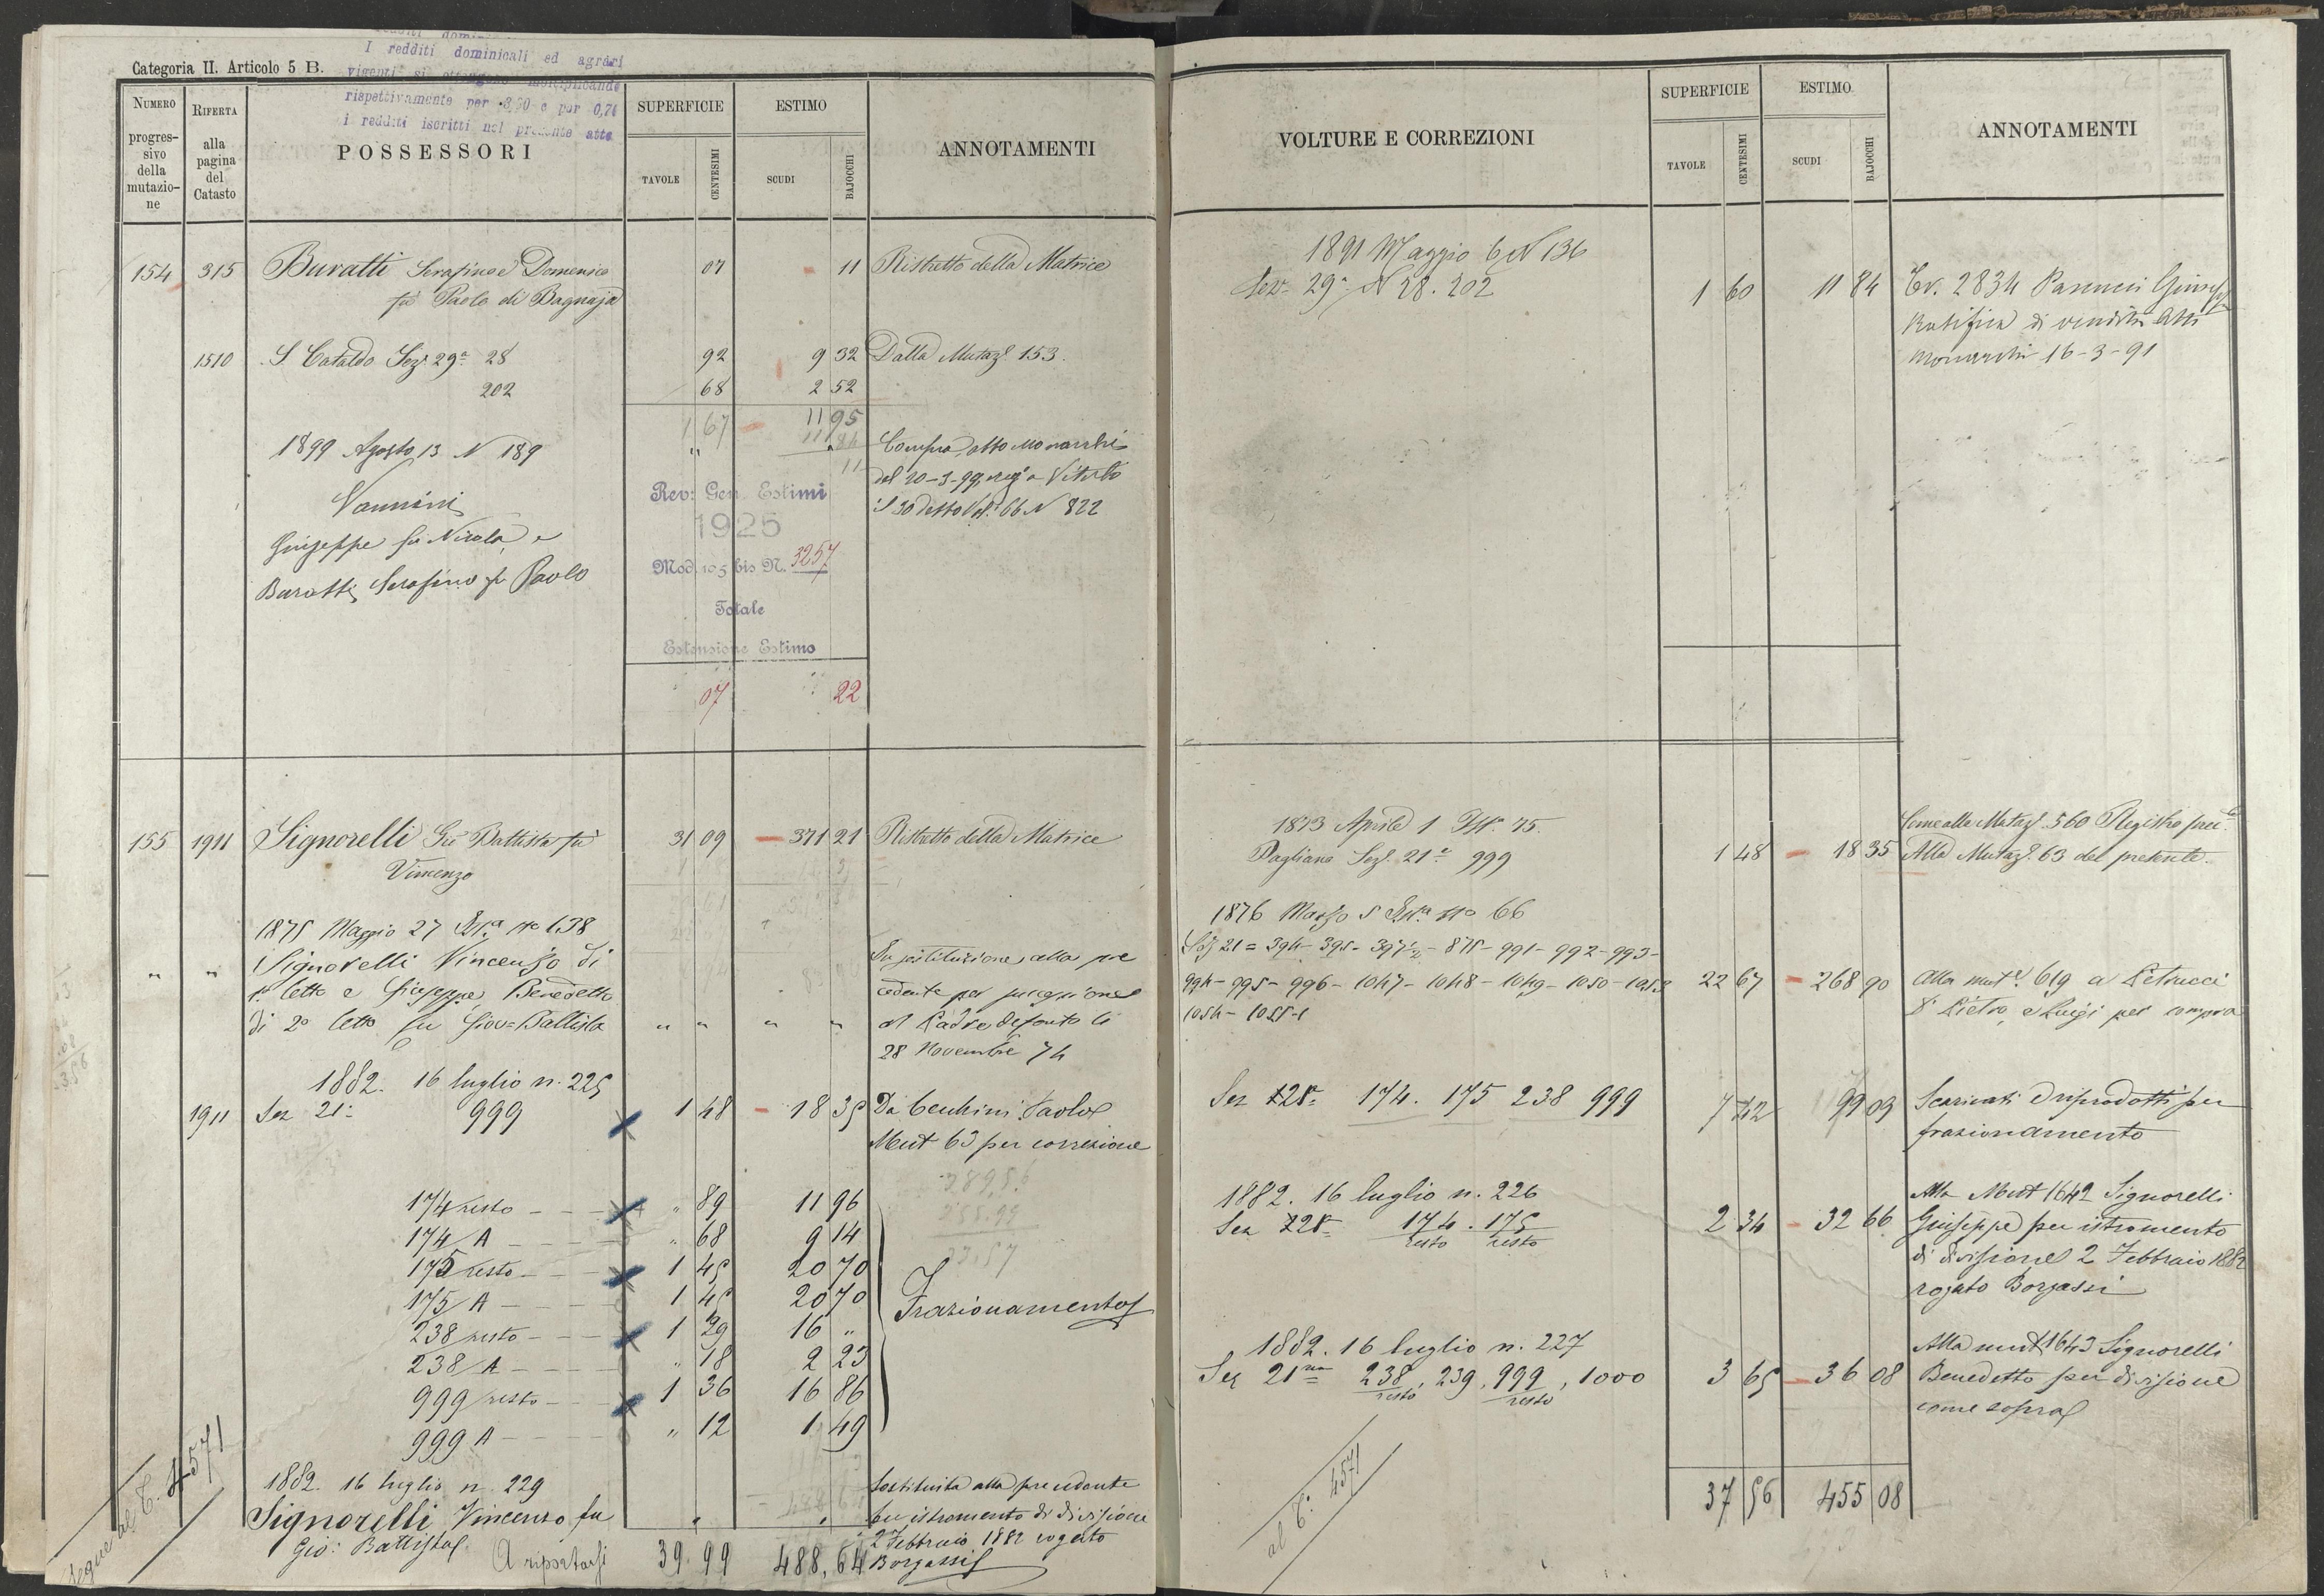 Categoria II. Articolo 5 B.
I redditi dominicali ed agrari
vigenti si ottengono moltiplicando
rispettivamente per 3,90 e per 0,74
i redditi iscritti nel presente atto
NUMERO progressivo della mutazione
RIFERTA alla pagina del Catasto
POSSESSORI
SUPERFICIE
TAVOLE
CENTESIMI
ESTIMO
SCUDI
BAJOCCHI
ANNOTAMENTI
154 315 Buratti Serafino e Domenico 07 11 Ristretto della Matrice
fu Paolo di Bagnaja
1510 S. Cataldo Sez. 29a 28 92 9 32 Dalla Mutaz. 153.
202 68 2 52
1 67 11 95
11 84
1899 Agosto 13 N 189 " " Compra atto Monarchi
11 del 20-3-99, reg. a Viterbo
Vannini Rev: Gen. Estimi il 30 detto Vol. 66 N 822
1925
Giuseppe fu Nicola e
Mod. 105 bis N. 3257
Buratti Serafino fu Paolo
Totale
Estensione Estimo
07 22
155 1911 Signorelli Gio Battista fu 31 09 371 21 Ristretto della Matrice
Vincenzo
1875 Maggio 27 no 638
" " Signorelli Vincenzo di In sostituzione alla pre
1o letto e Giuseppe, Benedetto cedente per successione
di 2o letto fu Giov=Battista " " " " al Padre defonto li
28 Novembre 74
1882. 16 luglio n. 225
1911 Sez 21a 999 1 48 18 35 Da Cecchini Paolo
Mut 63 per correzione
289,56
255.99
33,57
174 resto " 89 11 96
174/A " 68 9 14
175 resto 1 45 20 70
175/A 1 45 20 70 Frazionamento
238 resto 1 29 16 "
238/A " 18 2 23
999 resto 1 36 16 86
999 A " 12 1 49
Segue al C. 4571
1882. 16 luglio n. 229 Sostituita alla precedente
Signorelli Vincenzo fu " " per istromento di divisione
Gio: Battista 2 Febbraio 1882 rogato
A riportarsi 39.99 488,64 Borgassi
VOLTURE E CORREZIONI
SUPERFICIE
TAVOLE
CENTESIMI
ESTIMO
SCUDI
BAJOCCHI
ANNOTAMENTI
1891 Maggio 6 N 136
Sez. 29a N 28. 202 1 60 11 84 Ev. 2834 Panucci Giuseppe
Ratifica di vendita Atti
Monarchi 16-3-91
1873 Aprile 1 N. 75.
Come alla Mutaz. 560 Registro
Pagliano Sez. 21a 999 1 48 18 35 Alla Mutaz. 63 del presente.
1876 Marzo 5 no 66
Sez 21 = 394 - 395 - 397½ - 875 - 991 - 992 - 993 -
994 - 995 - 996 - 1047 - 1048 - 1049 - 1050 - 1053 22 67 268 90 Alla mut. 619 a Petrucci
1054 - 1055-1 Pietro, e Luigi per compra
Sez 21a 174. 175 238 999 7 42 99 09 Scaricati e riprodotti per
frazionamento
1882. 16 luglio n. 226 Alla Mut 1642 Signorelli
Sez 21a 174 resto. 175 resto 2 34 32 66 Giuseppe per istromento
di divisione 2 Febbraio 1882
rogato Borgassi
1882. 16 luglio n. 227 Alla mut. 1643 Signorelli
Sez 21ma 238 resto, 239, 999 resto, 1000 3 65 36 08 Benedetto per divisione
come sopra
al C. 4571
37 56 455 08